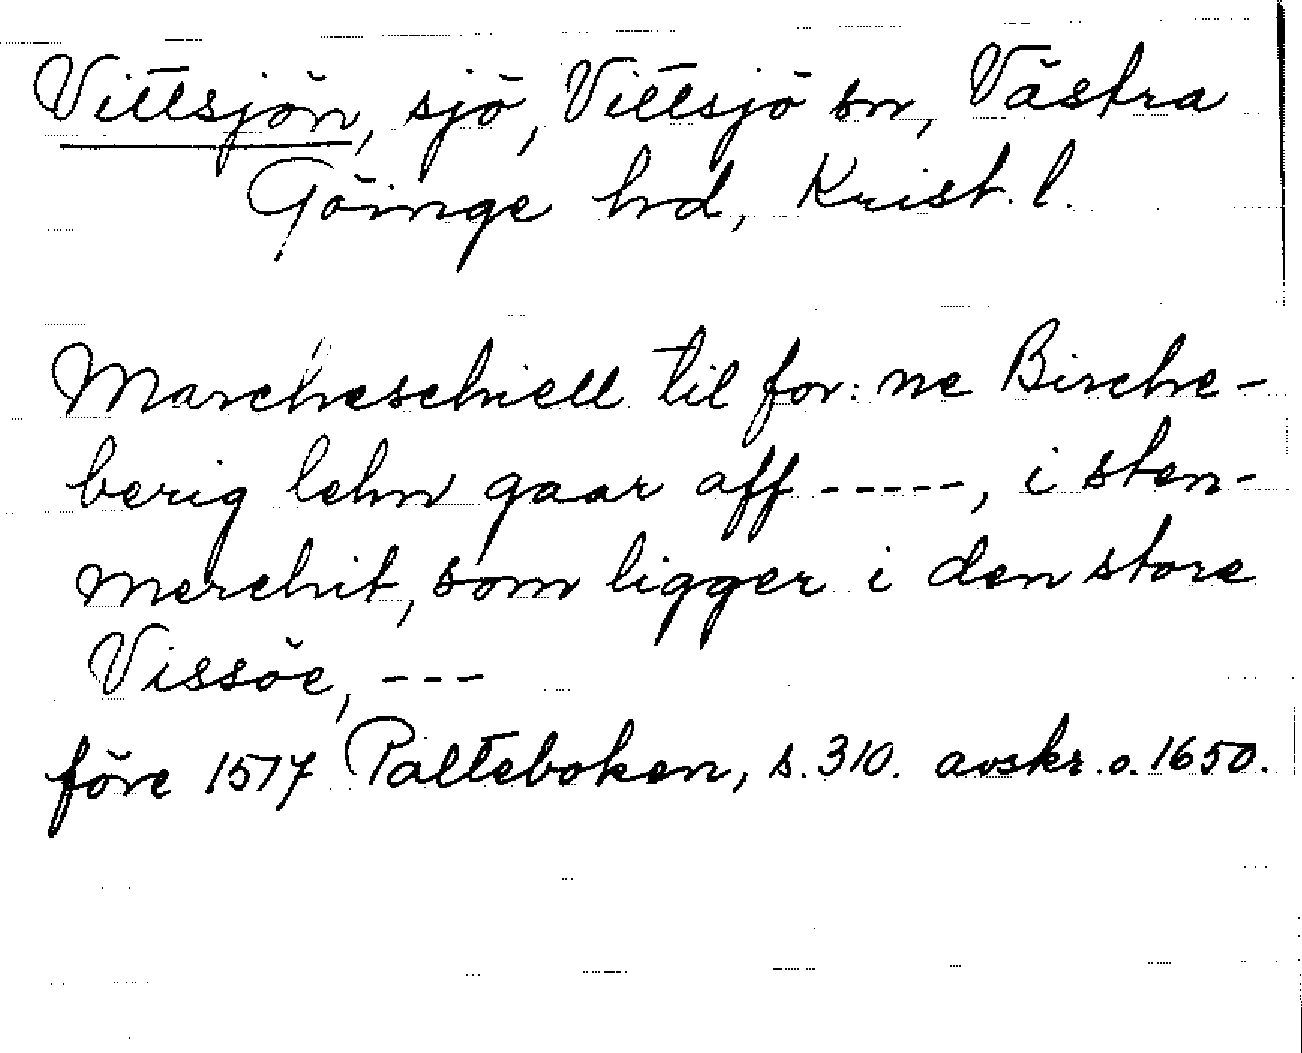 Vittsjön, sjö, Vittsjö sn, Västra
Göinge hd, Krist. l.
Marcheschiell til for: ne Birche-
berig lehn gaar aff -----, i sten-
merchit, som ligger i den store
Vissöe, ---
före 1517 Palteboken, s. 310. avskr. o. 1650.